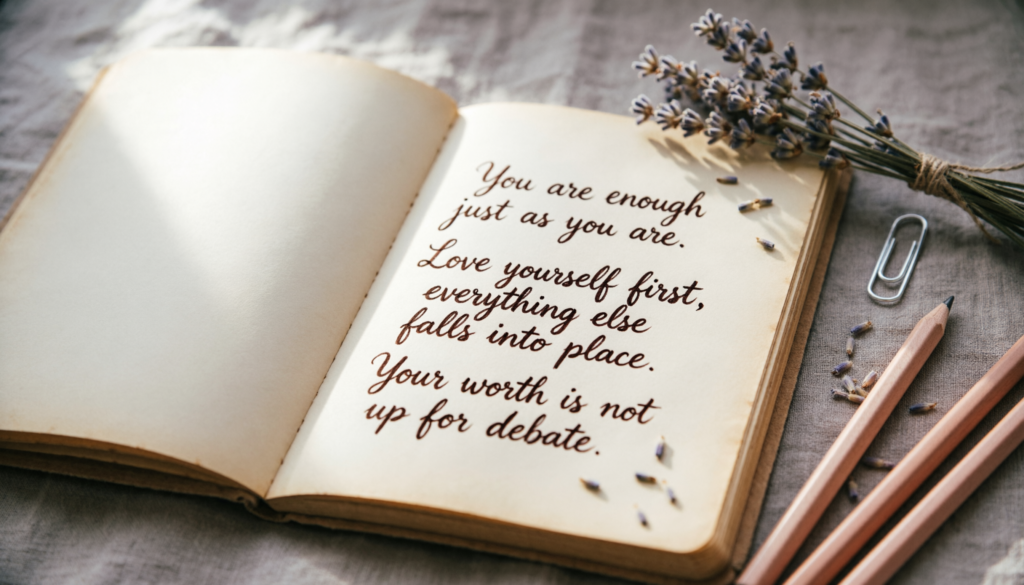 You are enough
just as you are.
Love yourself first,
everything else
falls into place.
Your worth is not
up for debate.